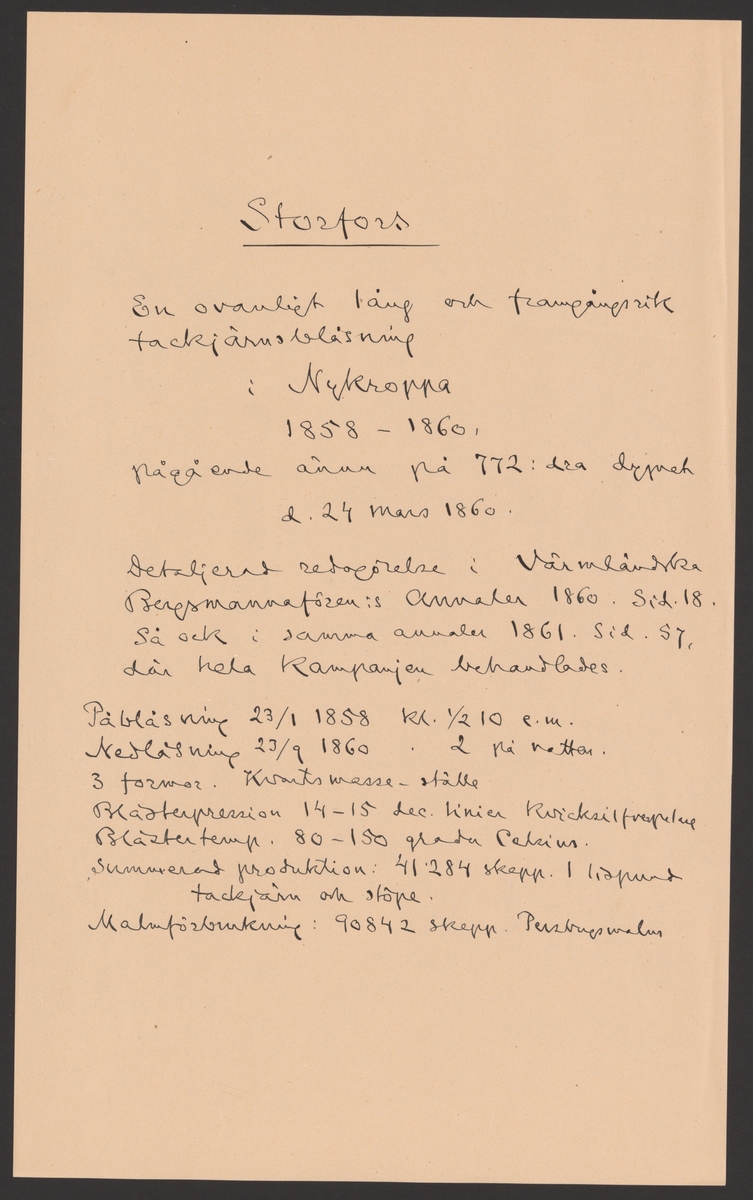 Storfors
En ovanligt lång och framgångsrik
tackjärnsblåsning
i Nykroppa
1858 - 1860,
pågående ännu på 772:dra dygnet
d. 24 mars 1860.
Detaljerad redogörelse i Värmländska
Bergsmannafören:s Annaler 1860. Sid. 18.
Så ock i samma annaler 1861. Sid. 57,
där hela Kampanjen behandlades.
Påblåsning 23/1 1858 kl. 1/2 10 e.m.
Nedblåsning 23/9 1860 . 2 på natten.
3 formor. Kvartsmasse-ställe
Blästerpression 14-15 dec. linier Kvicksilfverpelare
Blästertemp. 80-150 grader Celsius.
Summerad produktion: 41284 skepp. 1 lispund
tackjärn och stöpe.
Malmförbrukning: 90842 skepp. Persbergsmalm